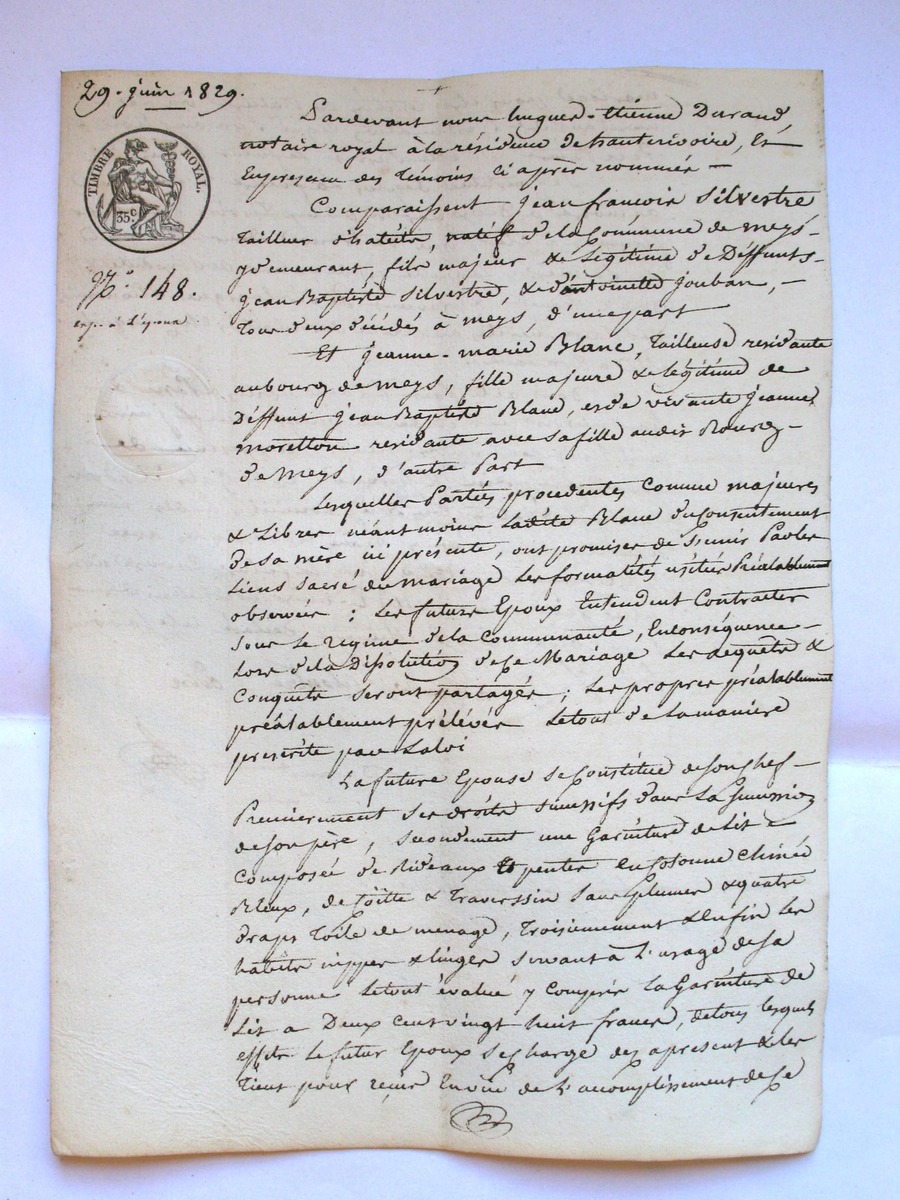 29. juin 1829.
TIMBRE ROYAL.
35c
No. 148.
exp. à l'epoux
Pardevant nous hugues-Etienne Durand,
notaire royal à la résidence de hauterivoire, Et
En presence des témoins ci après nommés —
Comparaissent jean françois Silvestre
tailleur d'habits, natif de la Commune de meys-
y demeurant, fils majeur & Légitime de Déffunts-
jean Baptiste Silvestre, & d'antoinette jouban, —
tous deux décédés à meys, d'une part
Et jeanne-marie Blanc, tailleuse residante
au bourg de meys, fille majeure & légitime de
Déffunt jean Baptiste Blanc, et de vivante jeanne
moretton residante avec sa fille audit Bourg-
de meys, d'autre Part
Lesquelles Parties procedentes Comme majeures
& Libres néantmoins ladite Blanc du Consentement
de sa mère ici présente, ont promises de s'unir Par les
liens sacré du mariage les formalités usitées Préalablement
observées ; Les futurs Epoux Entendent Contracter
sous le régime de la Communauté, En conséquence-
Lors de la Dissolution de ce Mariage les acquets &
Conquêts seront partagés ; les propres préalablement
préalablement prélévés le tout de la maniere
prescrite par la loi
La future Epouse se Constitue de son chef —
Premièrement ses droits successifs dans la succession
de son père, secondement une Garniture de lit
Composée de Rideaux Et pentes en cotonne chinée
Bleux, de Coitte & traverssin sans plumes & quatre
draps toile de menage, troisiemement & enfin les
habits nippes & linges servant à l'usage de sa
personne le tout évalué y compris la Garniture de
Lit a Deux cent vingt huit francs, de tous lesquels
effets le futur Epoux se charge dez apresent & les
tient pour reçus En vûe de l'accomplissement de Ce